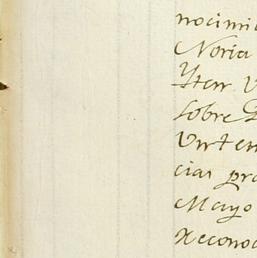 nocimi
Noria
Yten
sobre
Vnten
cias pra
Mayo
Reconoc